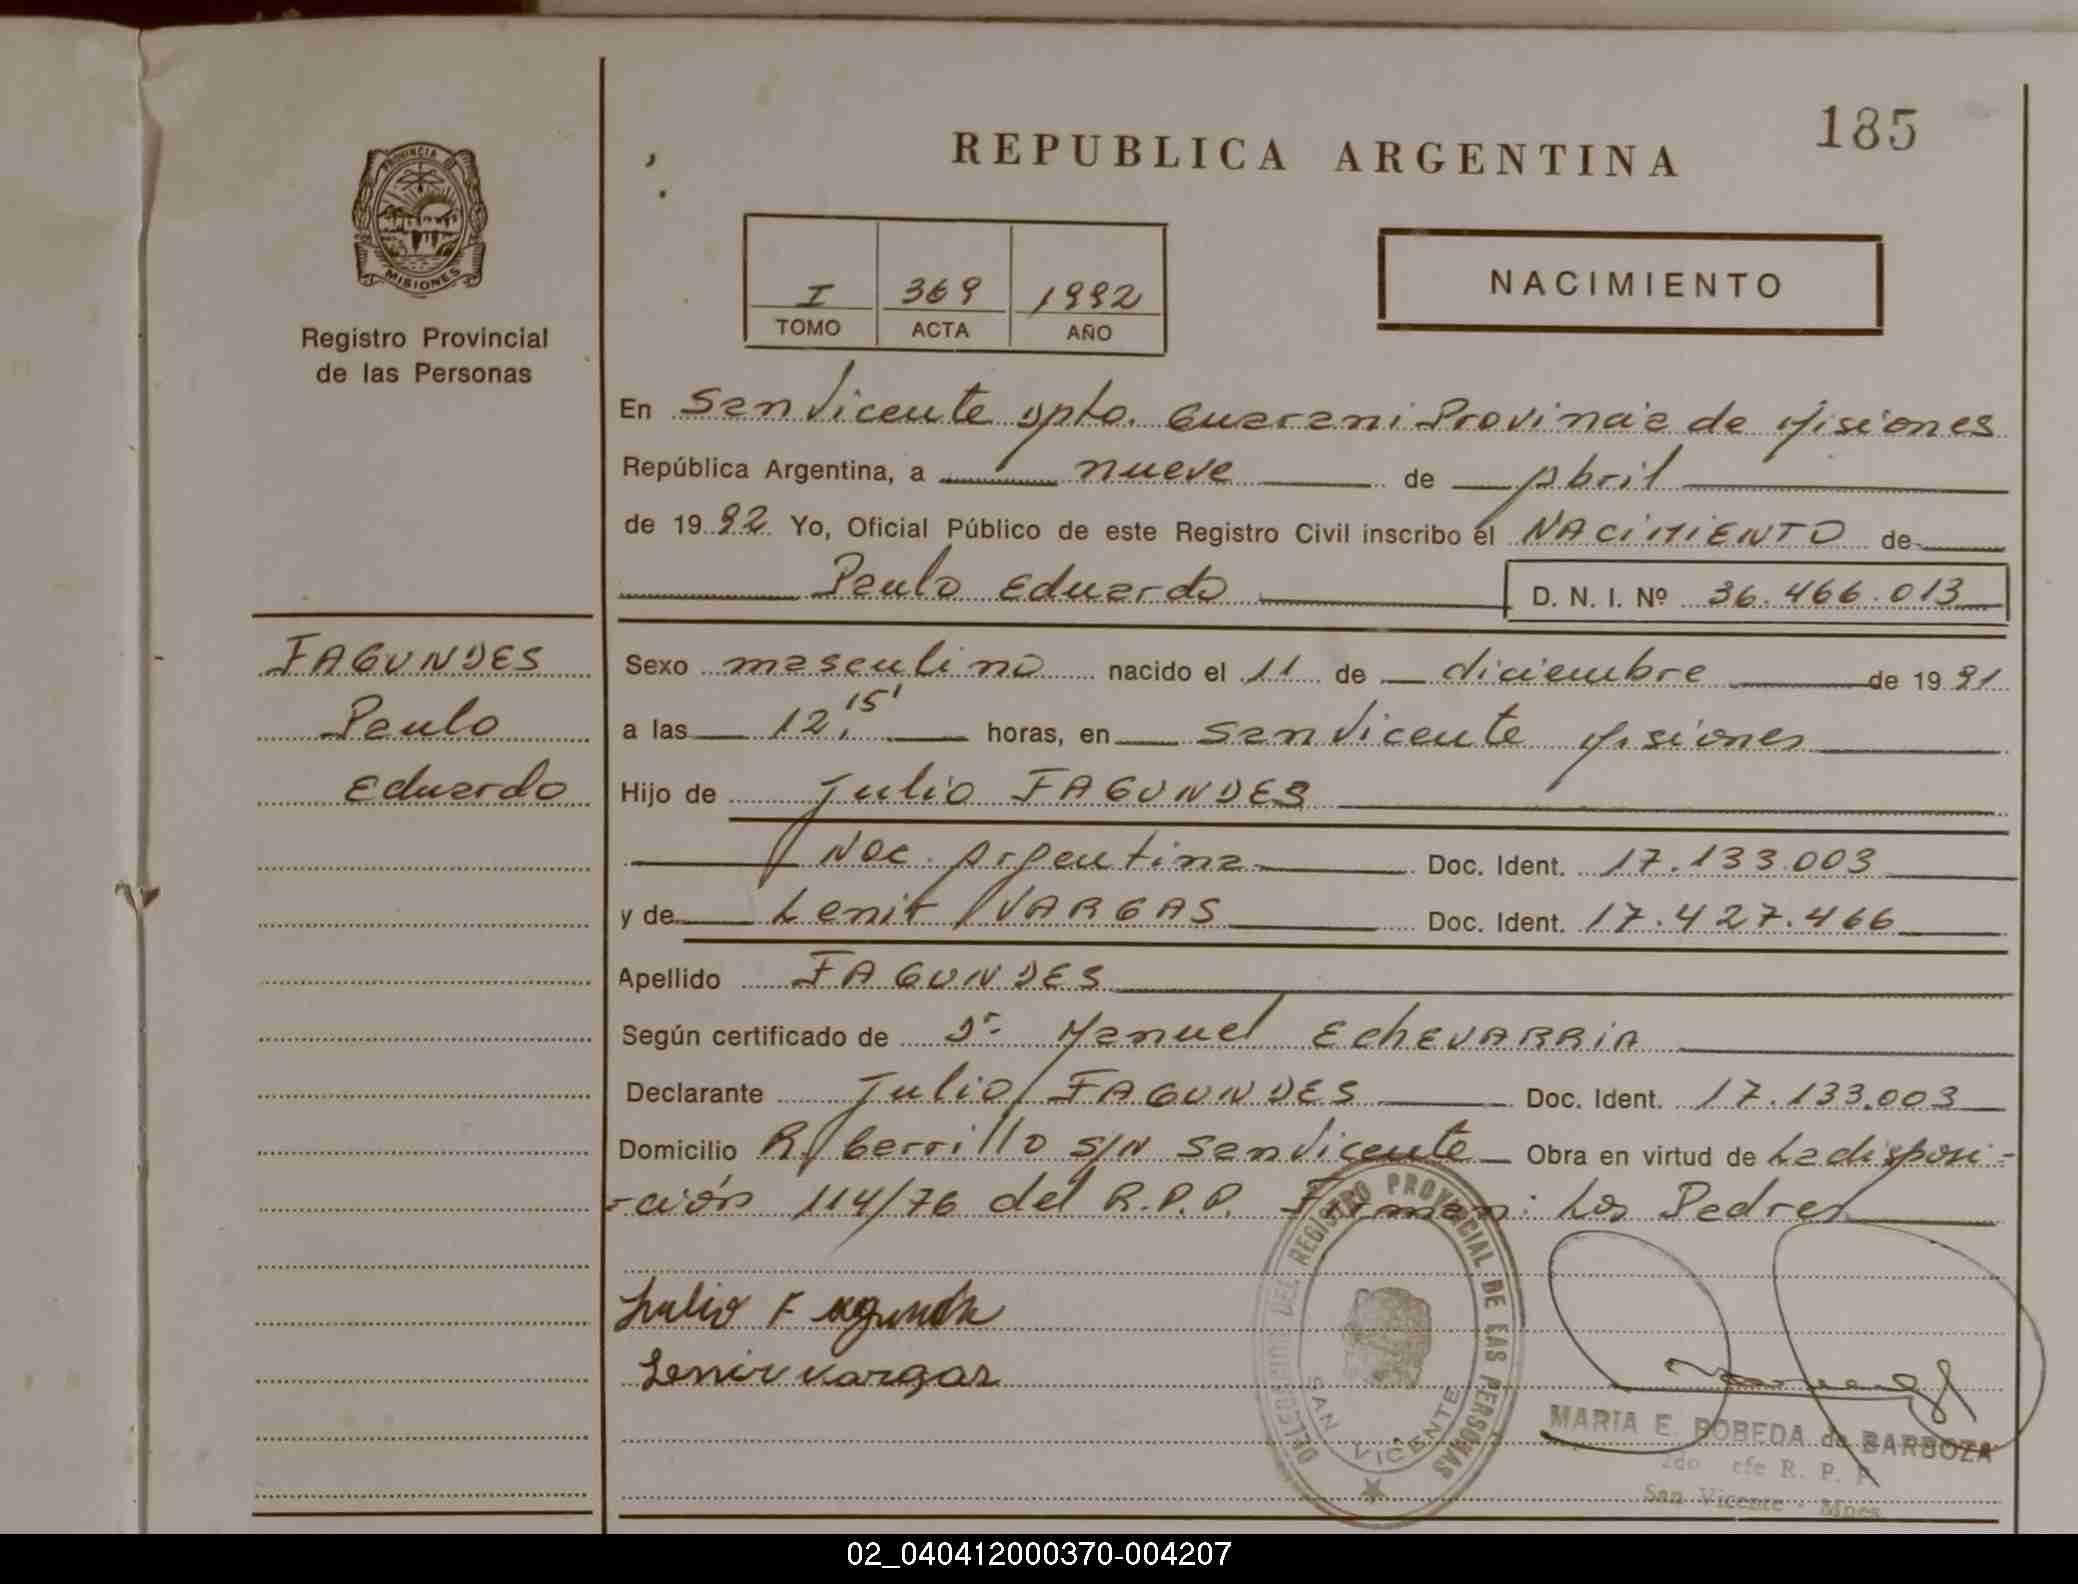 185
REPUBLICA ARGENTINA
PROVINCIA D
MISIONES
Registro Provincial
de las Personas
I 369 1992
TOMO ACTA AÑO
NACIMIENTO
En San Vicente Dpto. Guarani Provincia de Misiones
República Argentina, a nueve de Abril
de 1992 Yo, Oficial Público de este Registro Civil inscribo el NACIMIENTO de
Paulo Eduardo D. N. I. Nº 36.466.013
FAGUNDES
Paulo
Eduardo
Sexo masculino nacido el 11 de diciembre de 1991
a las 12,15' horas, en San Vicente Misiones
Hijo de Julio FAGUNDES
Nac. Argentina Doc. Ident. 17.133.003
y de Lenir VARGAS Doc. Ident. 17.427.466
Apellido FAGUNDES
Según certificado de Dr. Manuel EchEVARRiA
Declarante Julio FAGUNDES Doc. Ident. 17.133.003
Domicilio B/ S/N San Vicente Obra en virtud de La disposi-
-ción 114/76 del R.P.P. Firman: Los Padres
Julio Fagunde
Lenir vargas
DELEGACION DEL REGISTRO PROVINCIAL DE LAS PERSONAS
SAN VICENTE
MARIA E. BOBEDA de BARBOZA
2do Jefe R. P. P.
San Vicente - Mnes
02_040412000370-004207